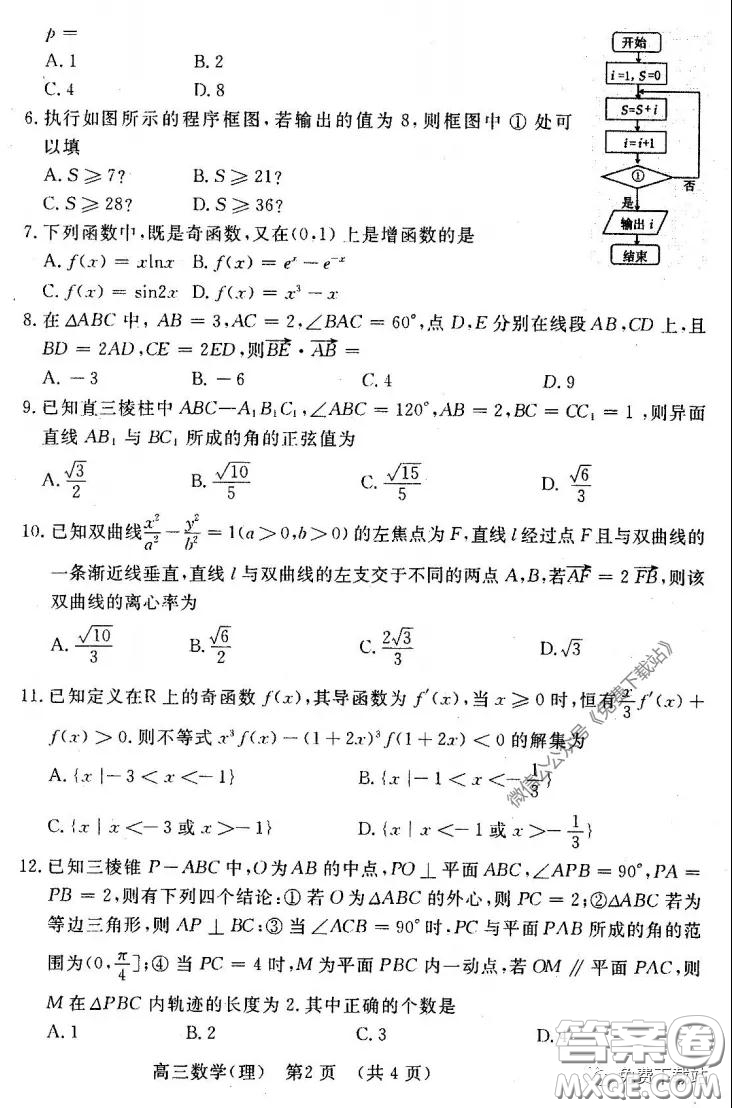 p =
A. 1 B. 2
C. 4 D. 8
6. 执行如图所示的程序框图,若输出的值为 8,则框图中 ① 处可
以填
A. S ⩾ 7? B. S ⩾ 21?
C. S ⩾ 28? D. S ⩾ 36?
开始
i=1, S=0
S=S+i
i=i+1
①
否
是
输出 i
结束
7. 下列函数中,既是奇函数,又在(0,1) 上是增函数的是
A. f(x) = xlnx B. f(x) = e^x − e^{−x}
C. f(x) = sin2x D. f(x) = x³ − x
8. 在 △ABC 中, AB = 3, AC = 2, ∠BAC = 60°,点 D,E 分别在线段 AB,CD 上,且
BD = 2AD, CE = 2ED,则 \overrightarrow{BE} · \overrightarrow{AB} =
A. − 3 B. − 6 C. 4 D. 9
9. 已知直三棱柱中 ABC—A₁B₁C₁, ∠ABC = 120°, AB = 2, BC = CC₁ = 1 ,则异面
直线 AB₁ 与 BC₁ 所成的角的正弦值为
A. √3/2 B. √10/5 C. √15/5 D. √6/3
10. 已知双曲线 x²/a² − y²/b² = 1(a > 0,b > 0) 的左焦点为 F,直线 l 经过点 F 且与双曲线的
一条渐近线垂直,直线 l 与双曲线的左支交于不同的两点 A,B,若 \overrightarrow{AF} = 2 \overrightarrow{FB},则该
双曲线的离心率为
A. √10/3 B. √6/2 C. 2√3/3 D. √3
11. 已知定义在R 上的奇函数 f(x),其导函数为 f′(x),当 x ⩾ 0 时,恒有 x/3 f′(x) +
f(x) > 0. 则不等式 x³f(x) − (1 + 2x)³f(1 + 2x) < 0 的解集为
A. {x | − 3 < x < − 1} B. {x | − 1 < x < − 1/3}
C. {x | x < − 3 或 x > − 1} D. {x | x < − 1 或 x > − 1/3}
12. 已知三棱锥 P − ABC 中,O 为 AB 的中点,PO ⊥ 平面 ABC, ∠APB = 90°, PA =
PB = 2,则有下列四个结论:① 若 O 为 △ABC 的外心,则 PC = 2;② △ABC 若为
等边三角形,则 AP ⊥ BC:③ 当 ∠ACB = 90° 时. PC 与平面 PAB 所成的角的范
围为(0, π/4];④ 当 PC = 4 时,M 为平面 PBC 内一动点,若 OM // 平面 PAC,则
M 在 △PBC 内轨迹的长度为 2. 其中正确的个数是
A. 1 B. 2 C. 3 D.
高三数学(理) 第2页 (共 4 页)
微信公众号《免费下载站》
答案卷
免费下载站